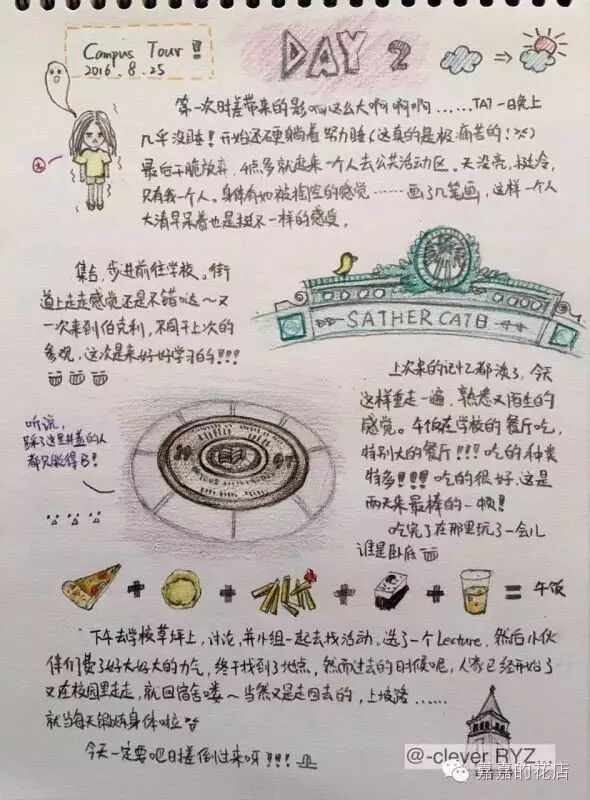 Campus Tour!!
2016.8.25
DAY 2
第一次时差带来的影响这么大啊啊啊……TAT 一日晚上
几乎没睡!开始还硬躺着努力睡(这真的是极痛苦的!
最后干脆放弃,4点多就起来一个人去公共活动区。天没亮,挺冷,
只有我一个人。身体有如被掏空的感觉……画了几笔画,这样一个人
大清早呆着也是挺不一样的感受。
集合,步进前往学校。街
道上走走感觉还是不错哒~又
一次来到伯克利,不同于上次的
参观,这次是来好好学习的!!!
SATHER GATE
上次来的记忆都淡了,今天
这样重走一遍,熟悉又陌生的
感觉。午饭在学校的餐厅吃,
特别大的餐厅!!!吃的种类
特多!!!!吃的很好,这是
两天来最棒的一顿!
吃完了在那里玩了一会儿
谁是卧底
听说,
踩了这里井盖的人
都只能得B!
19
+ + + + = 午饭
下午去学校草坪上,讨论,并小组一起去找活动。选了一个Lecture,然后小伙
伴们费了好大好大的力气,终于找到了地点,然而过去的时候呢,人家已经开始了
又在校园里走走,就回宿舍喽~当然又是走回去的,上坡路……
就当每天锻炼身体啦
今天一定要把时差倒过来呀!!!
@-clever RYZ
嘉嘉的花店